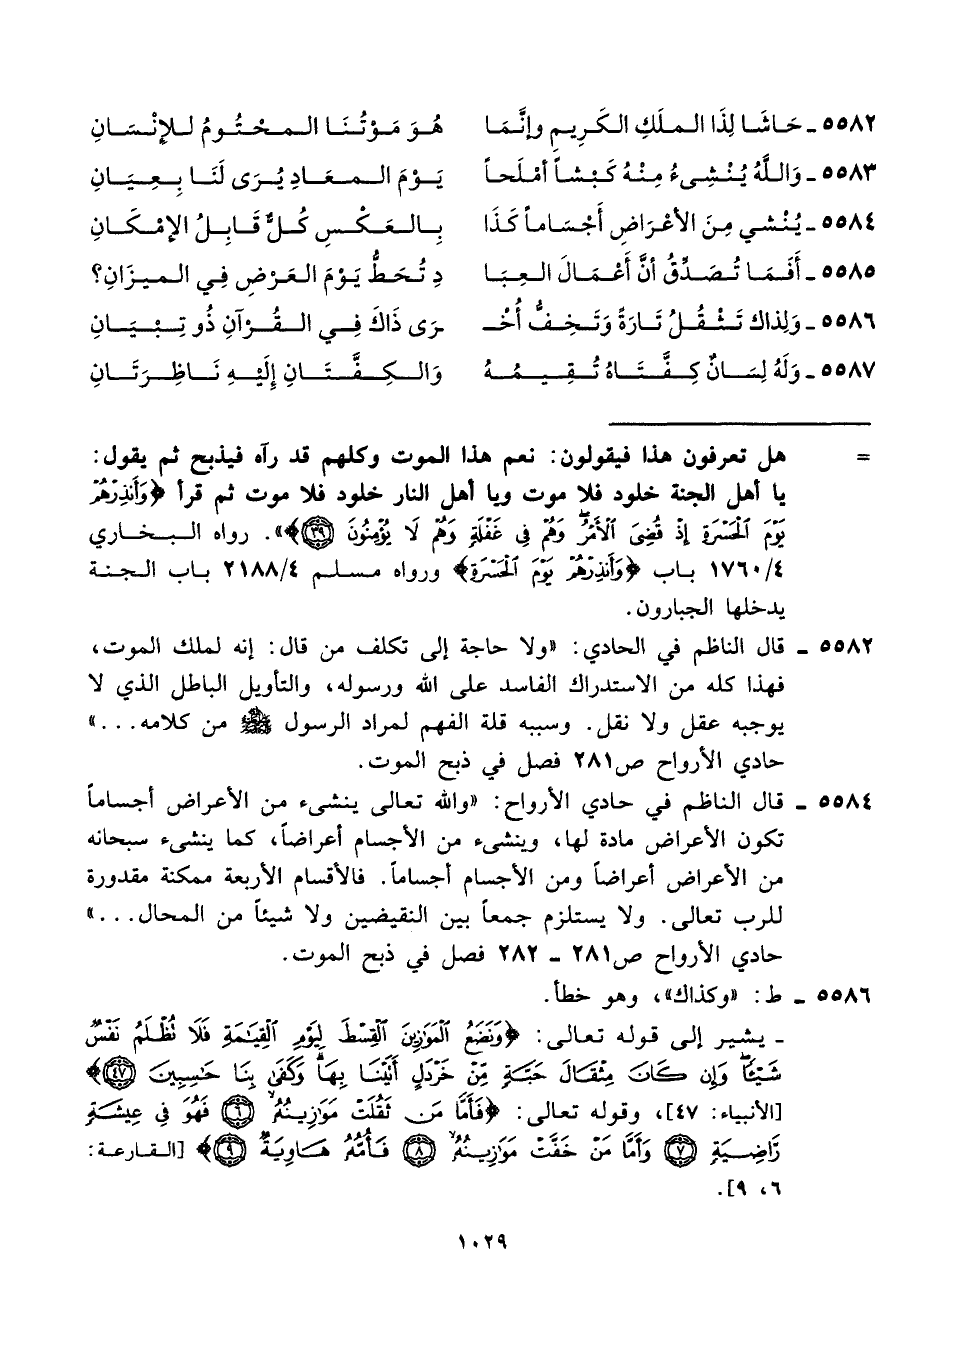 ٥٥٨٢ ـ حَاشَا لِذَا المَلَكِ الكَرِيمِ وإنَّمَا هُوَ مَوْتُنَا المحْتُومُ لِلإنْسَانِ
٥٥٨٣ ـ وَاللَّهُ يُنْشِيءُ مِنْهُ كَبْشاً أمْلَحاً يَوْمَ المعَادِ يُرَى لَنَا بِعِيَانِ
٥٥٨٤ ـ يُنْشي مِنَ الأعْرَاضِ أجْسَاماً كَذَا بِالعَكْسِ كُلٌّ قَابِلُ الإمْكَانِ
٥٥٨٥ ـ أفَمَا تُصَدِّقُ أنَّ أعْمَالَ العِبَا دِ تُحَطُّ يَوْمَ العَرْضِ فِي الميزَانِ؟
٥٥٨٦ ـ وَلِذاكَ تَثْقُلُ تَارَةً وَتَخِفُّ أُخْـ ـرَى ذَاكَ فِي القُرْآنِ ذُو تِبْيَانِ
٥٥٨٧ ـ وَلَهُ لِسَانٌ كِفَّتَاهُ تُقِيمُهُ وَالكِفَّتَانِ إلَيْهِ نَاظِرَتَانِ
= هل تعرفون هذا فيقولون: نعم هذا الموت وكلهم قد رآه فيذبح ثم يقول:
يا أهل الجنة خلود فلا موت ويا أهل النار خلود فلا موت ثم قرأ ﴿وَأَنذِرْهُمْ
يَوْمَ الْحَسْرَةِ إِذْ قُضِيَ الْأَمْرُ وَهُمْ فِي غَفْلَةٍ وَهُمْ لَا يُؤْمِنُونَ ﴿٣٩﴾﴾». رواه البخاري
١٧٦٠/٤ باب ﴿وَأَنذِرْهُمْ يَوْمَ الْحَسْرَةِ﴾ ورواه مسلم ٢١٨٨/٤ باب الجنة
يدخلها الجبارون.
٥٥٨٢ ـ قال الناظم في الحادي: «ولا حاجة إلى تكلف من قال: إنه لملك الموت،
فهذا كله من الاستدراك الفاسد على الله ورسوله، والتأويل الباطل الذي لا
يوجبه عقل ولا نقل. وسببه قلة الفهم لمراد الرسول ﷺ من كلامه...»
حادي الأرواح ص٢٨١ فصل في ذبح الموت.
٥٥٨٤ ـ قال الناظم في حادي الأرواح: «والله تعالى ينشىء من الأعراض أجساماً
تكون الأعراض مادة لها، وينشىء من الأجسام أعراضاً، كما ينشىء سبحانه
من الأعراض أعراضاً ومن الأجسام أجساماً. فالأقسام الأربعة ممكنة مقدورة
للرب تعالى. ولا يستلزم جمعاً بين النقيضين ولا شيئاً من المحال...»
حادي الأرواح ص٢٨١ ـ ٢٨٢ فصل في ذبح الموت.
٥٥٨٦ ـ ط: «وكذاك»، وهو خطأ.
ـ يشير إلى قوله تعالى: ﴿وَنَضَعُ الْمَوَازِينَ الْقِسْطَ لِيَوْمِ الْقِيَامَةِ فَلَا تُظْلَمُ نَفْسٌ
شَيْئًا وَإِن كَانَ مِثْقَالَ حَبَّةٍ مِّنْ خَرْدَلٍ أَتَيْنَا بِهَا وَكَفَى بِنَا حَاسِبِينَ ﴿٤٧﴾﴾
[الأنبياء: ٤٧]، وقوله تعالى: ﴿فَأَمَّا مَن ثَقُلَتْ مَوَازِينُهُ ﴿٦﴾ فَهُوَ فِي عِيشَةٍ
رَّاضِيَةٍ ﴿٧﴾ وَأَمَّا مَنْ خَفَّتْ مَوَازِينُهُ ﴿٨﴾ فَأُمُّهُ هَاوِيَةٌ ﴿٩﴾﴾ [القارعة:
٦، ٩].
١٠٢٩